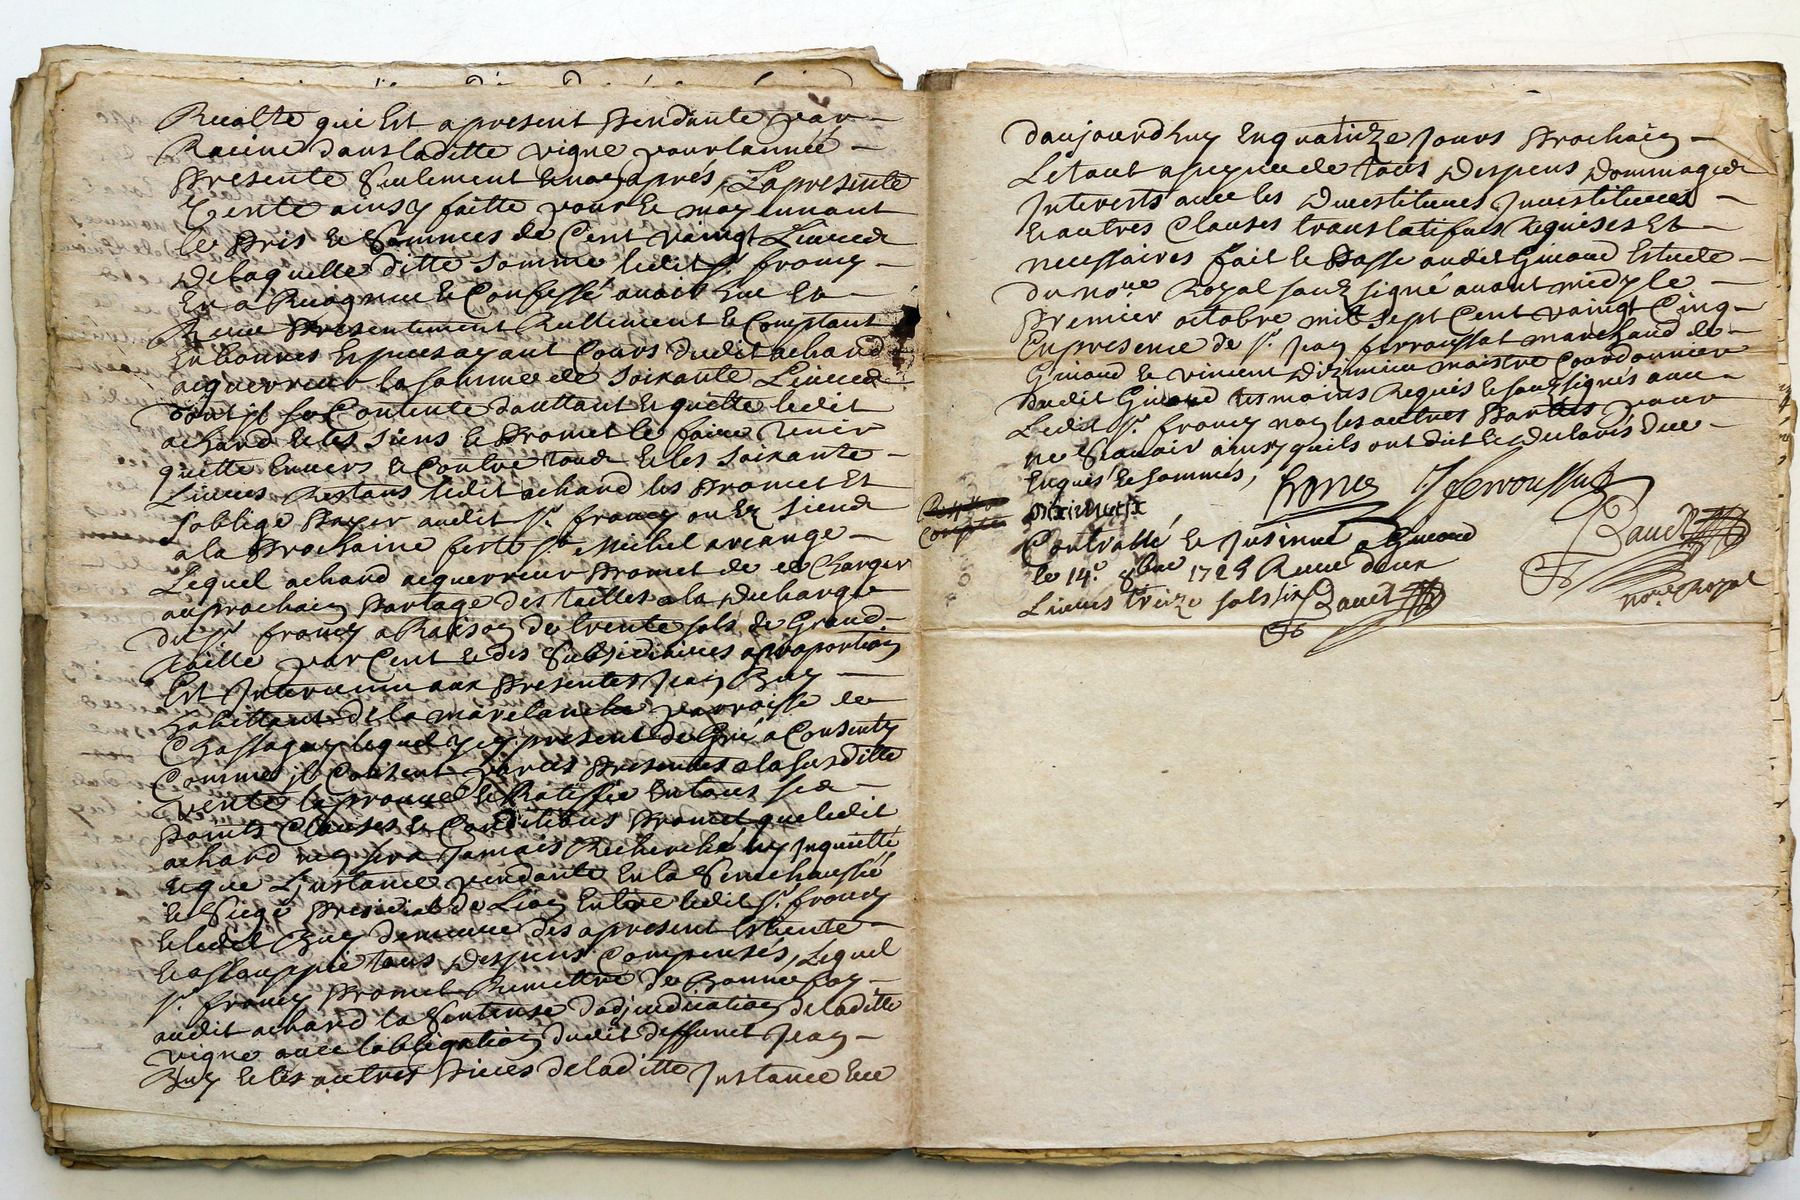 Recolte qui est apresent pendante par
Racine dans laditte vigne pour lannée
presente seulement et non après, La presente
Vente ainsy faitte pour et moyennant
le pris et sommes de Cent vaingt Livres
De laquelle ditte somme ledit Sr. francy
En a Recognu et Confessé avoir Eue et
Reeue presentement Reellement et Comptant
En bonnes Espèces ayant Cours dudit achard
acquerreur la somme de soixante Livres
dont il se Contente d'auttant En quitte ledit
achard et les siens et promet le faire tenir
quitte Envers et Contre tous et les soixante
Livres Restans ledit achard les promet Et
soblige payer audit Sr. francy ou Es siens
a la prochaine feste St. Michel arcange
Lequel achard acquerreur promet de se Charger
au prochain partage des tailles a la decharge
du Sr. francy a Raison de trente sols de Grand
taille par Cent et des subsidiaires aproportion
Est Intervenu aux presentes Jean Buy
habittant de la parroisse de
Chassagny lequel Icy present de Gré a Consenty
Comme il Consent par ces presentes a la susditte
vente la prouve et Ratiffie En tous ses
points Clauses et Conditions promet que ledit
achard ne sera Jamais Recherché ny Inquietté
et que L'instance pendante En la Senechaussée
et Siege presidial de Lion Entre ledit Sr. francy
et ledit Buy demeure des apresent Esteinte
et assouppie tous Despens Compensés, Lequel
Sr. francy promet Remettre de Bonne foy
audit achard la Sentense d'adjudication de laditte
vigne avec l'obligation dudit deffunct Jean
Buy et les autres pieces de laditte Instance
daujourdhuy En quainze Jours prochain
Le tout a peyne de tous Despens Dommages
Interests avec les Devestitures Investitures
et autres Clauses translatifves Requises Et
necessaires fait et Passé audit Givord Estude
du Nore. Royal souzsigné avant midy le
Premier octobre mil sept Cent vaingt Cinq
En presence de Sr. Jean ferroussat marchand de
Givord et vincent maistre Courdonnier
dudit Givord tesmoins Requis et souzsignés avec
Ledit Sr. francy non les autres parties pour
ne Scavoir ainsy quils ont dit et Declaré de ce
Enquis et sommés,
ferroussat
Controllé et Insinué a Givord
le 14e. 8bre 1725 Receu deux
Livres treize sols six
Nore. Royal